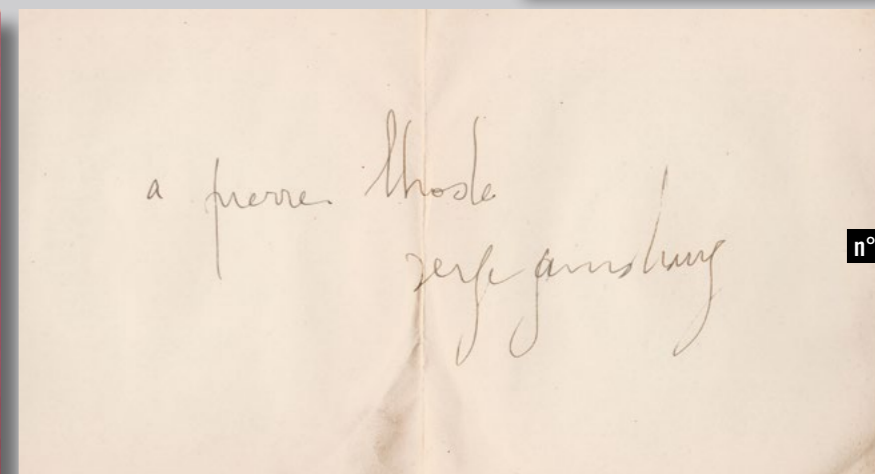 a pierre lhoste
serge gainsbourg
n°